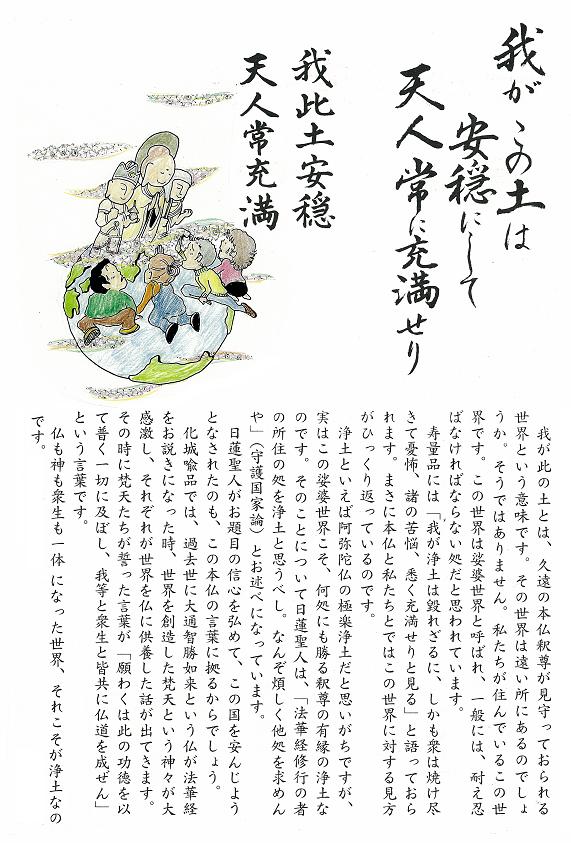 我がこの土は
安穏にして
天人常に充満せり
我此土安穏
天人常充満
我が此の土とは、久遠の本仏釈尊が見守っておられる
世界という意味です。その世界は遠い所にあるのでしょ
うか。そうではありません。私たちが住んでいるこの世
界です。この世界は娑婆世界と呼ばれ、一般には、耐え忍
ばなければならない処だと思われています。
寿量品には「我が浄土は毀れざるに、しかも衆は焼け尽
きて憂怖、諸の苦悩、悉く充満せりと見る」と語っておら
れます。まさに本仏と私たちとではこの世界に対する見方
がひっくり返っているのです。
浄土といえば阿弥陀仏の極楽浄土だと思いがちですが、
実はこの娑婆世界こそ、何処にも勝る釈尊の有縁の浄土な
のです。そのことについて日蓮聖人は、「法華経修行の者
の所住の処を浄土と思うべし。なんぞ煩しく他処を求めん
や」（守護国家論）とお述べになっています。
日蓮聖人がお題目の信心を弘めて、この国を安んじよう
となされたのも、この本仏の言葉に拠るからでしょう。
化城喩品では、過去世に大通智勝如来という仏が法華経
をお説きになった時、世界を創造した梵天という神々が大
感激し、それぞれが世界を仏に供養した話が出てきます。
その時に梵天たちが誓った言葉が「願わくは此の功徳を以
て普く一切に及ぼし、我等と衆生と皆共に仏道を成ぜん」
という言葉です。
仏も神も衆生も一体になった世界、それこそが浄土なの
です。